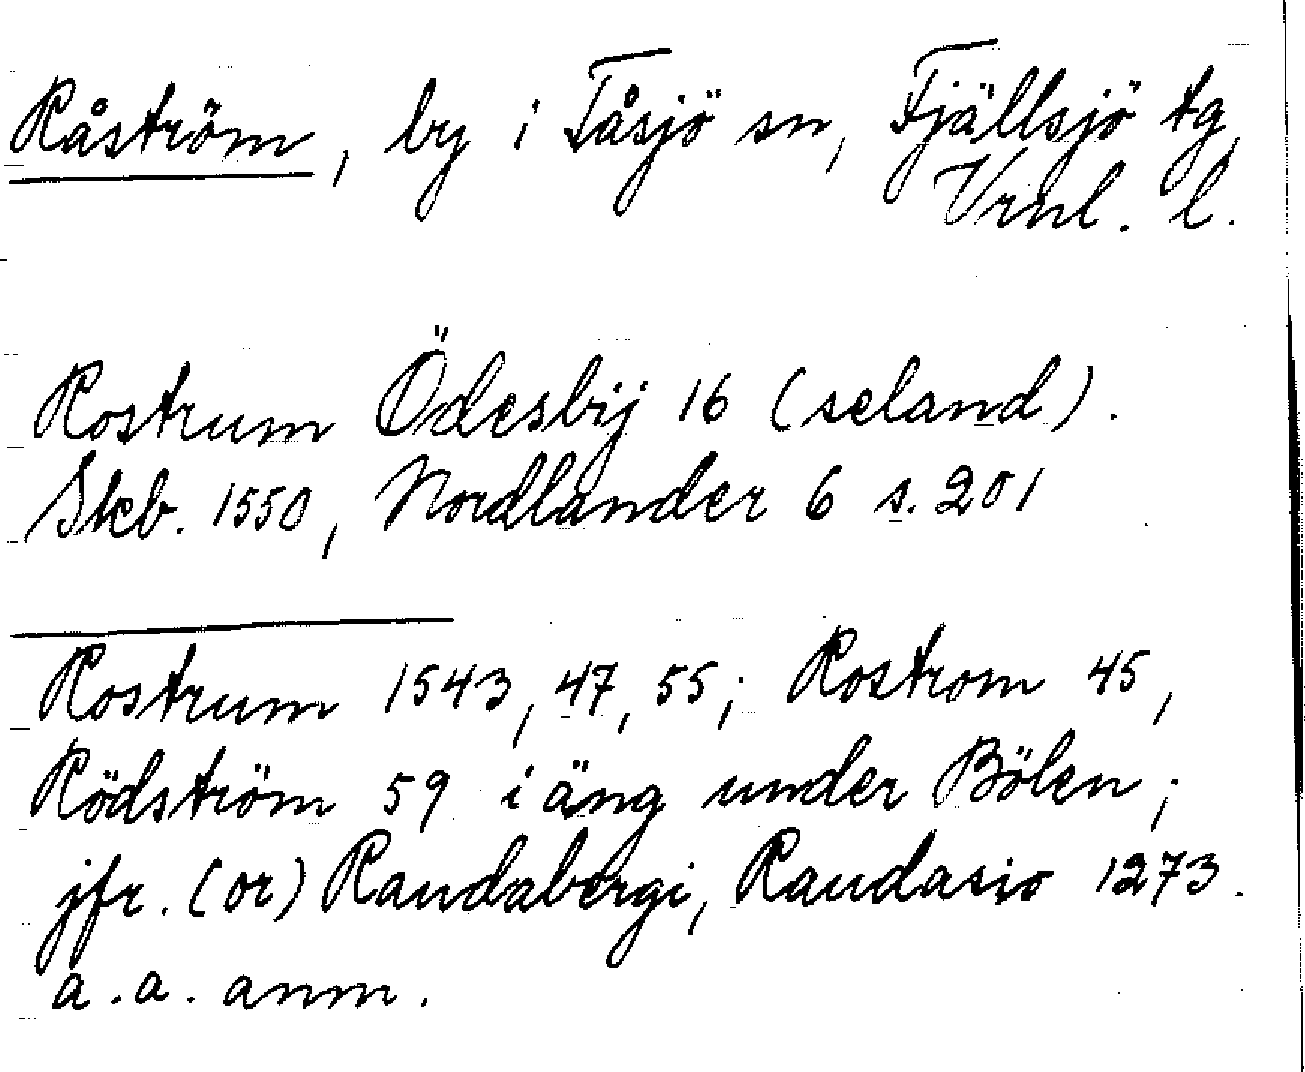 Råström, by i Tåsjö sn, Fjällsjö tg,
Vrnl. l.
Rostrum Ödesbÿ 16 (seland).
Skb. 1550, Nordlander 6 s. 201
Rostrum 1543, 47, 55; Rostrom 45,
Rödström 59 i äng under Bölen;
jfr. (or) Raudabergi, Raudasio 1273.
a.a. anm.